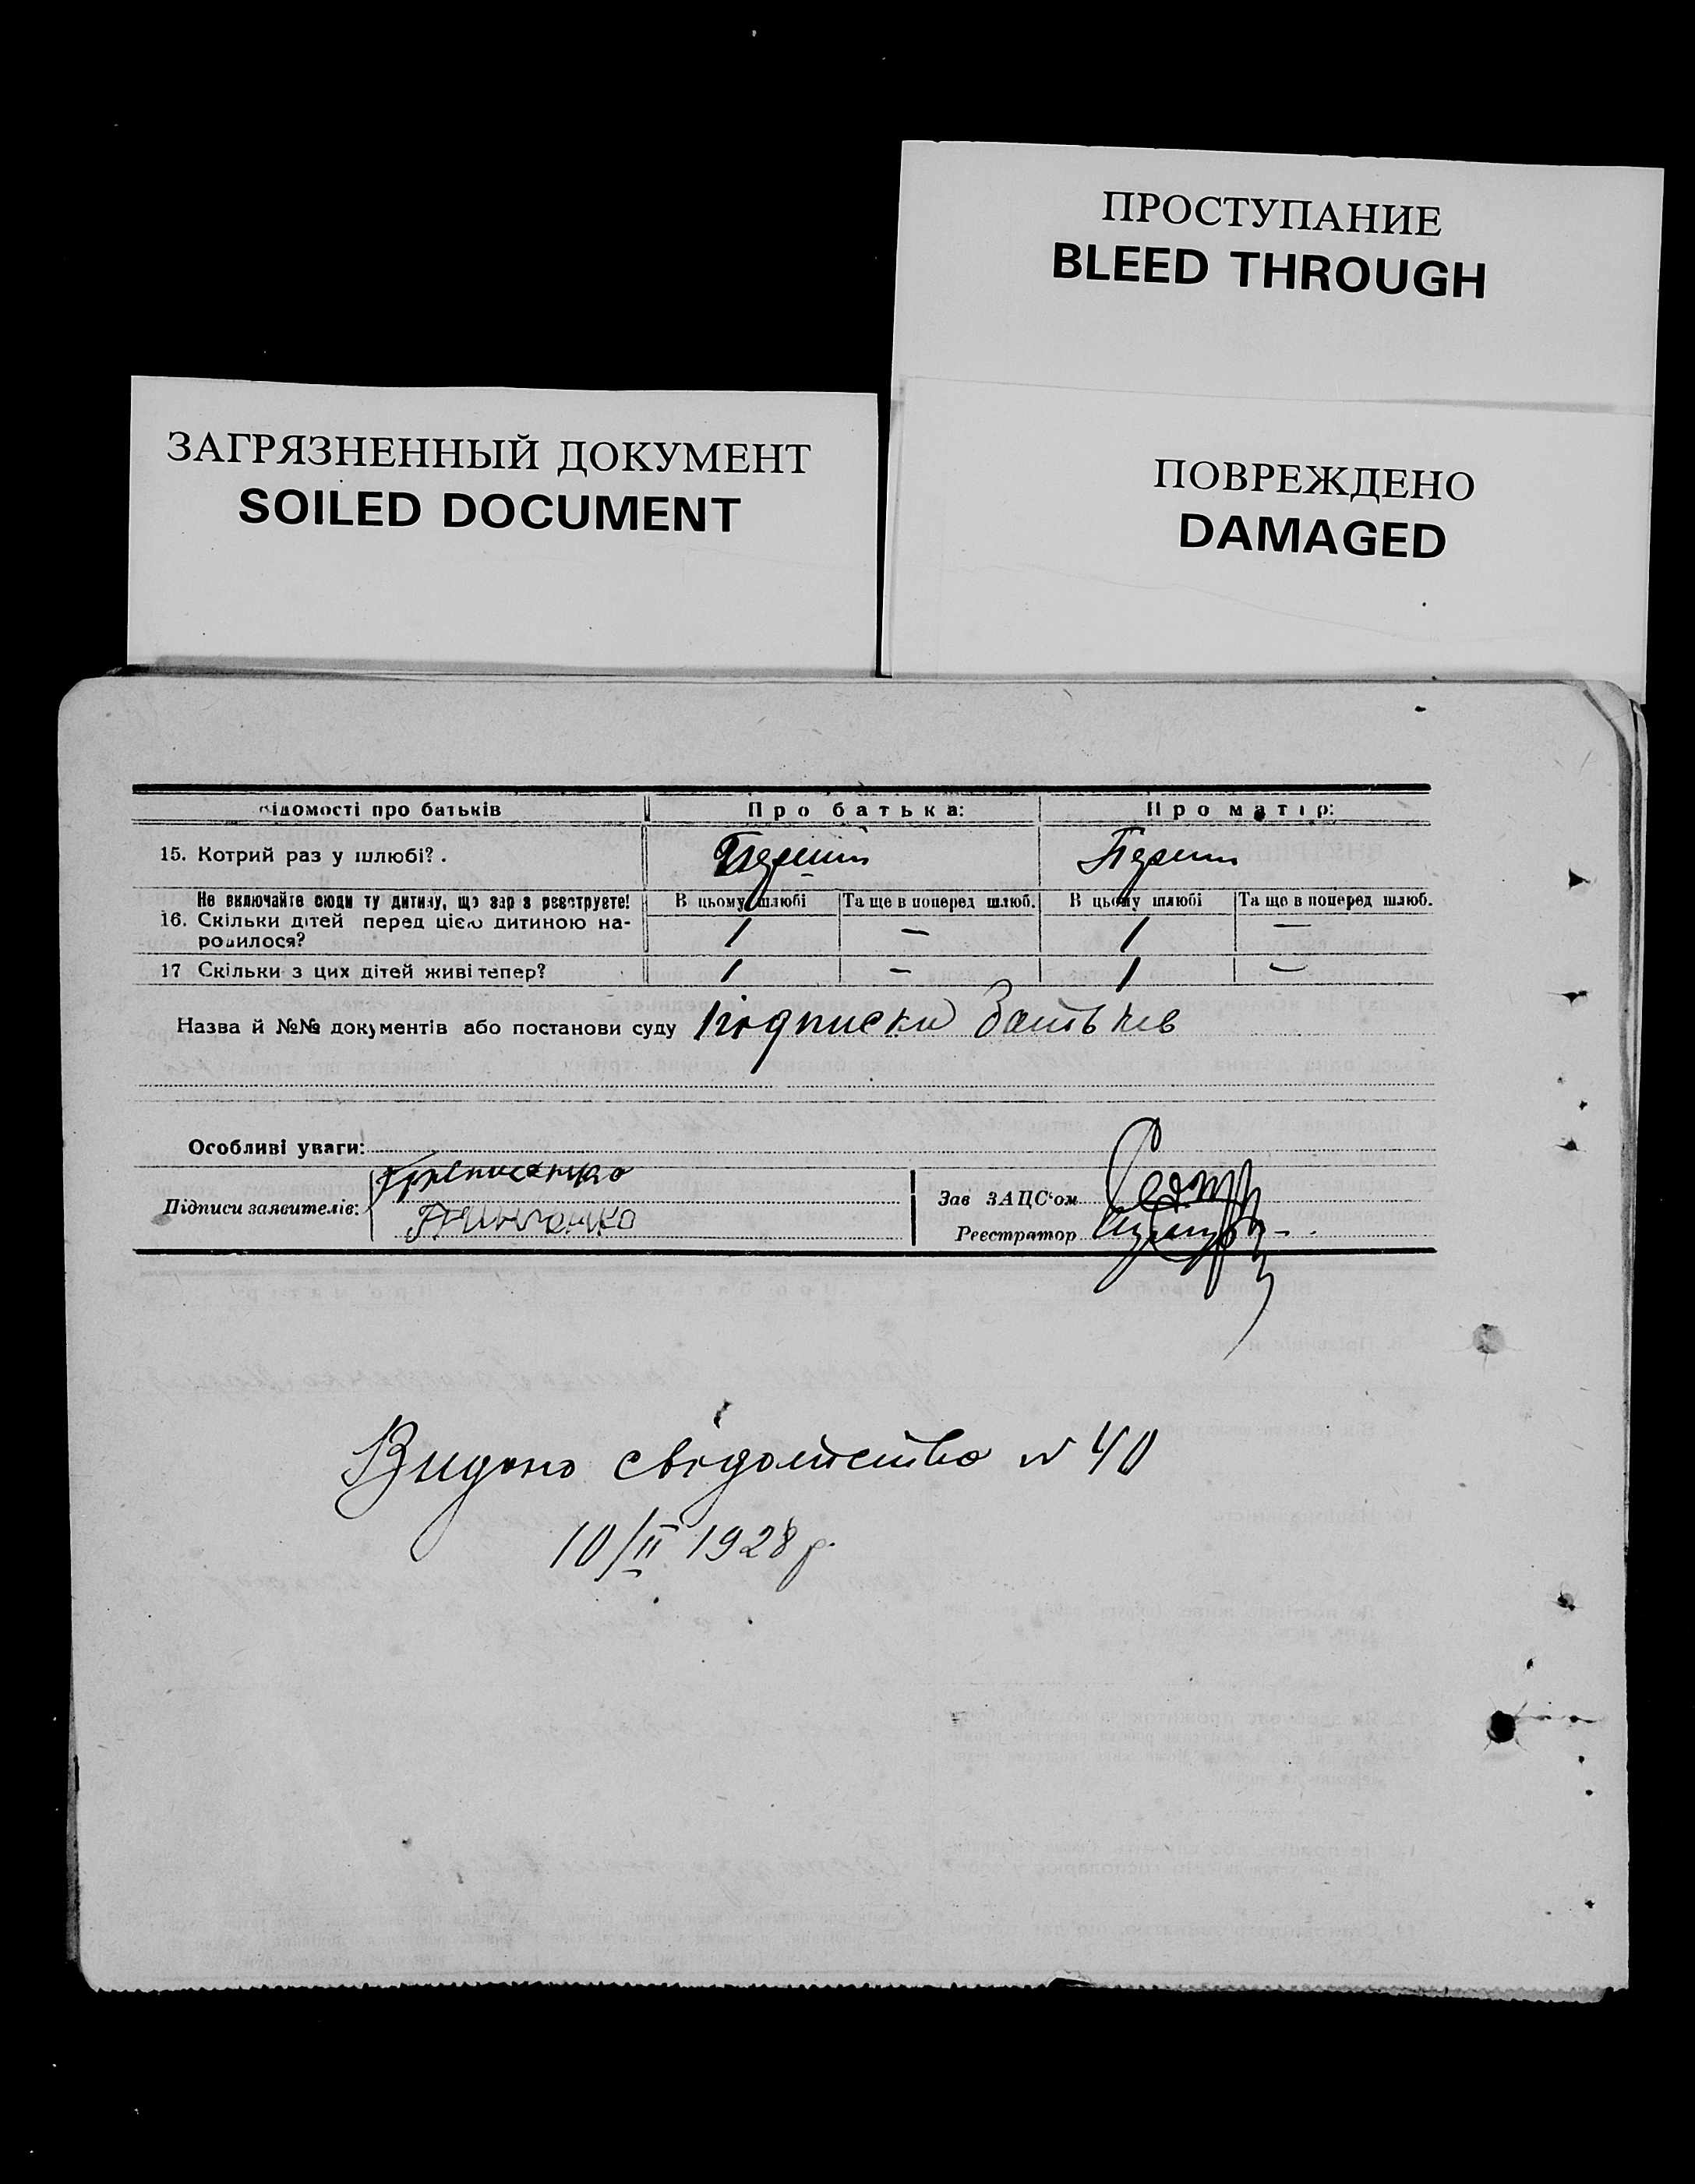 ПРОСТУПАНИЕ
BLEED THROUGH
ЗАГРЯЗНЕННЫЙ ДОКУМЕНТ
SOILED DOCUMENT
ПОВРЕЖДЕНО
DAMAGED
відомості про батьків Про батька: Про матір:
15. Котрий раз у шлюбі? . Перший Перший
Не включайте сюди ту дитину, що зараз реєструєте! В цьому шлюбі Та ще в поперед шлюб. В цьому шлюбі Та ще в поперед шлюб.
16. Скільки дітей перед цією дитиною на- 1 — 1 —
родилося?
17 Скільки з цих дітей живі тепер? 1 — 1 —
Назва й №№ документів або постанови суду Підписки батьків
Особливі уваги:
Підписи заявителів:
Зав ЗАЦС'ом
Реєстратор
Видано свідоцтво № 40
10/II 1928 р.